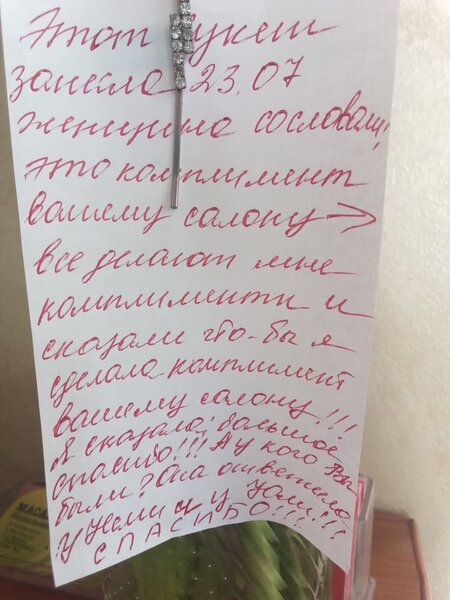 Этот букет
занесла 23.07
женщина сословами
это комплимент
вашему салону →
все делают мне
комплименти и
сказали что-бы я
сделала комплимент
вашему салону!!!
Я сказала; большое
спасибо!!! А у кого Вы
были? Она ответила
у Юлии и у
СПАСИБО!!!
МАСА